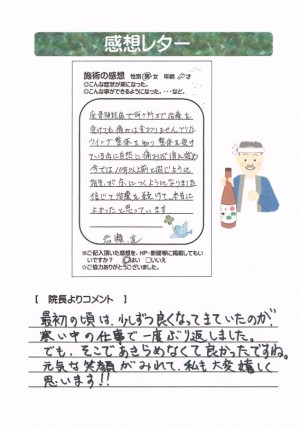 感想レター
施術の感想 性別 男 女 年齢 才
◎こんな症状が楽になった。
◎こんな事ができるようになった。・・・など。
坐骨神経痛で何ヶ所かで治療を
受けても痛みは変わりませんでした
ウイング整体を知り整体を受け
ている内に自然に痛みが消え始め
今では10年以上前と同じように
指先が床につくようになりました
信じて治療を続けて、本当に
よかったと思っています
※ご記入頂いた感想を、HP・新聞等に掲載してもい
いですか? はい □いいえ
☆ご協力ありがとうございました。
【 院長よりコメント 】
最初の頃は、少しずつ良くなってきていたのが、
寒い中の仕事で一度ぶり返しました。
でも、そこであきらめなくて良かったですね。
元気な笑顔がみれて、私も大変嬉しく
思います!!